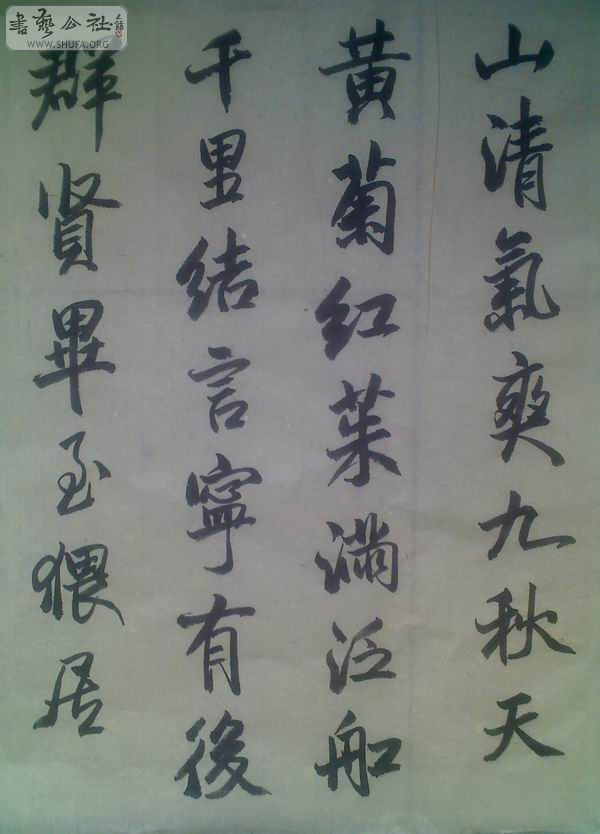 書藝公社
WWW.SHUFA.ORG
山清氣爽九秋天
黃菊紅茱滿泛船
千里結言寧有後
群賢畢至猥居